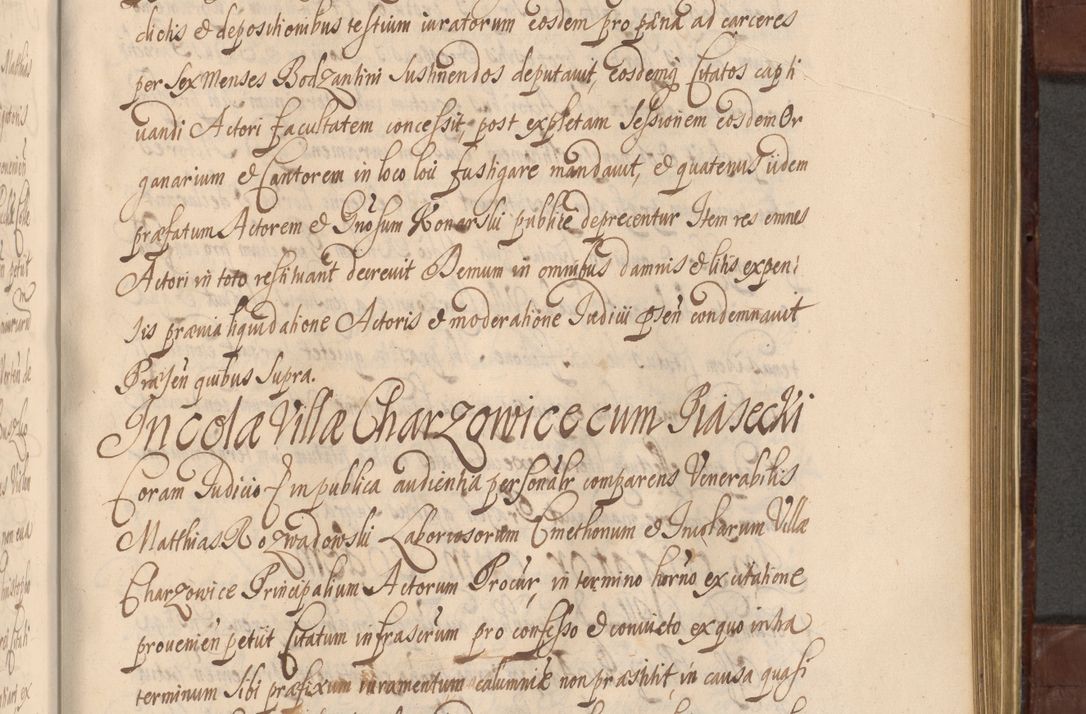 dictis & depositionibus testium iuratorum eosdem pro pœna ad carceres
per sex Menses Bodzantini sustinendos deputavit, eosdemq Citatos capti
vandi Actori facultatem concessit, post expletam Sessionem eosdem Or
ganarium & Cantorem in loco loci fustigare mandavit, & quatenus iidem
præfatum Actorem & Gnosum Konarski publice deprecentur Item res omnes
Actori in toto restituant decrevit Demum in omnibus damnis & litis expen:
sis prævia liquidatione Actoris & moderatione Iudicii psen condemnavit
Præsen quibus supra.
Incolæ Villæ Charzowice cum Piasecki
Coram Iudicio E in publica audientia personalr comparens Venerabilis
Matthias Rozwadowski Laboriosorum Cmethonum & Incolarum Villæ
Charzowice Principalium Actorum Procur, in termino horno ex citatione
provenien petiit Citatum infrascrum pro confesso & convicto ex quo in hа
terminum sibi præfixum iuramentum calumniæ non præstitit, in causa quasi